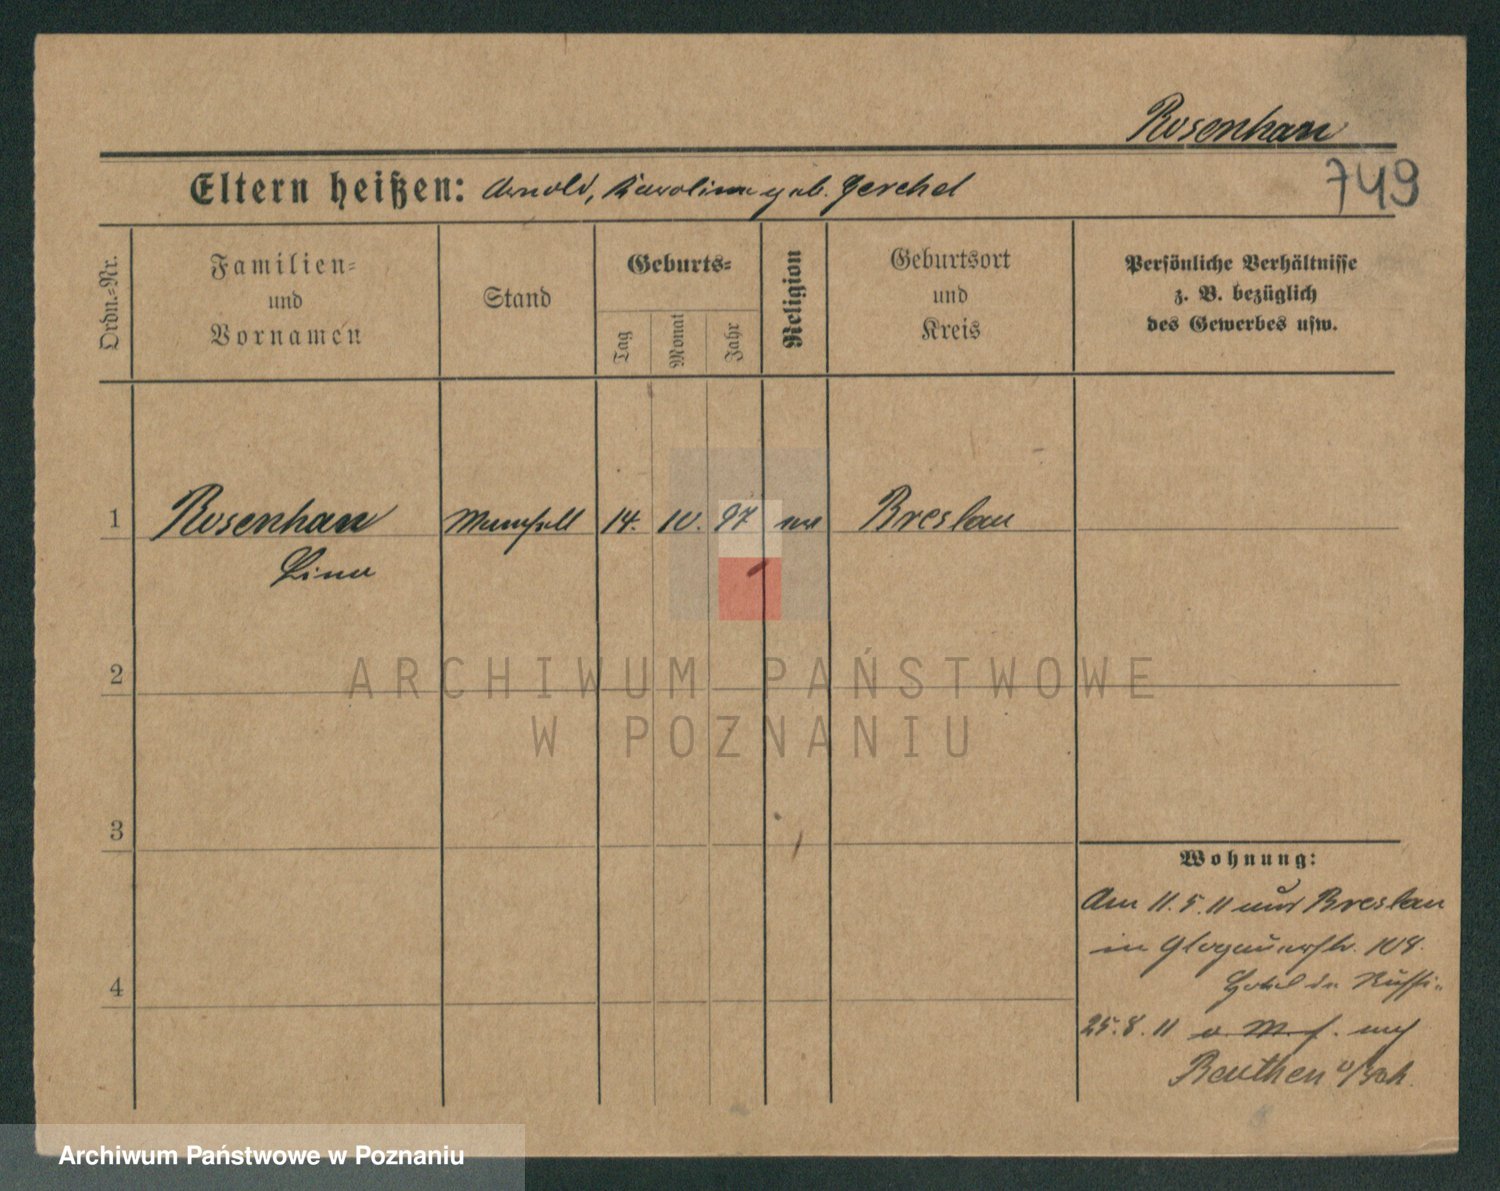 Rosenhan
Eltern heißen: Arnold, Karolina geb. Gerchel
749
Ordn.-Nr.
Familien-
und
Vornamen
Stand
Geburts-
Tag
Monat
Jahr
Religion
Geburtsort
und
Kreis
Persönliche Verhältnisse
z. B. bezüglich
des Gewerbes usw.
1 Rosenhan Mamsell 14. 10. 97 Breslau
Lina
2
3
4
Wohnung:
Am 11.5.11 aus Breslau
in Glogauerstr. 108.
Hotel de
25.8.11 nach
Beuthen
ARCHIWUM PAŃSTWOWE
W POZNANIU
Archiwum Państwowe w Poznaniu